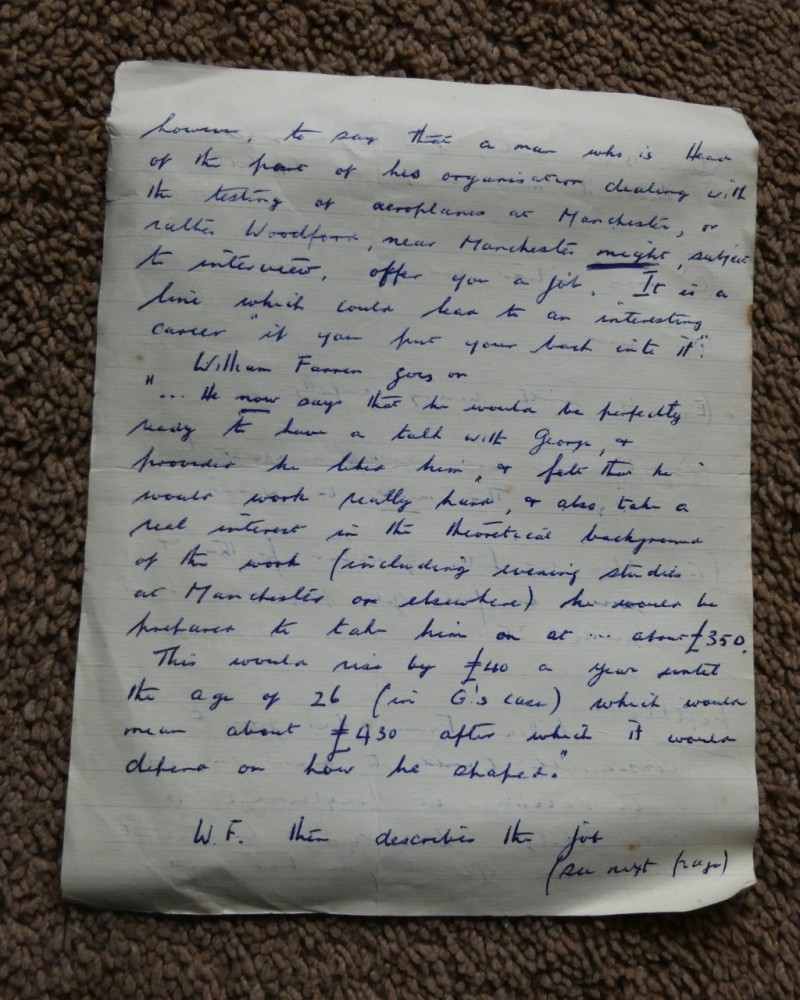 however, to say that a man who is Head
of the part of his organisation dealing with
the testing of aeroplanes at Manchester, or
rather Woodford, near Manchester might, subject
to interview, offer you a job. "It is a
line which could lead to an interesting
career "if you put your back into it".
William Farren goes on
"... He now says that he would be perfectly
ready to have a talk with George, &
provided he liked him, & felt that he
would work really hard, & also, take a
real interest in the theoretical background
of the work (including evening studies
at Manchester or elsewhere) he would be
prepared to take him on at ... about £350.
This would rise by £40 a year until
the age of 26 (in G's case) which would
mean about £430 after which it would
depend on how he shaped."
W.F. then describes the job
(see next page)